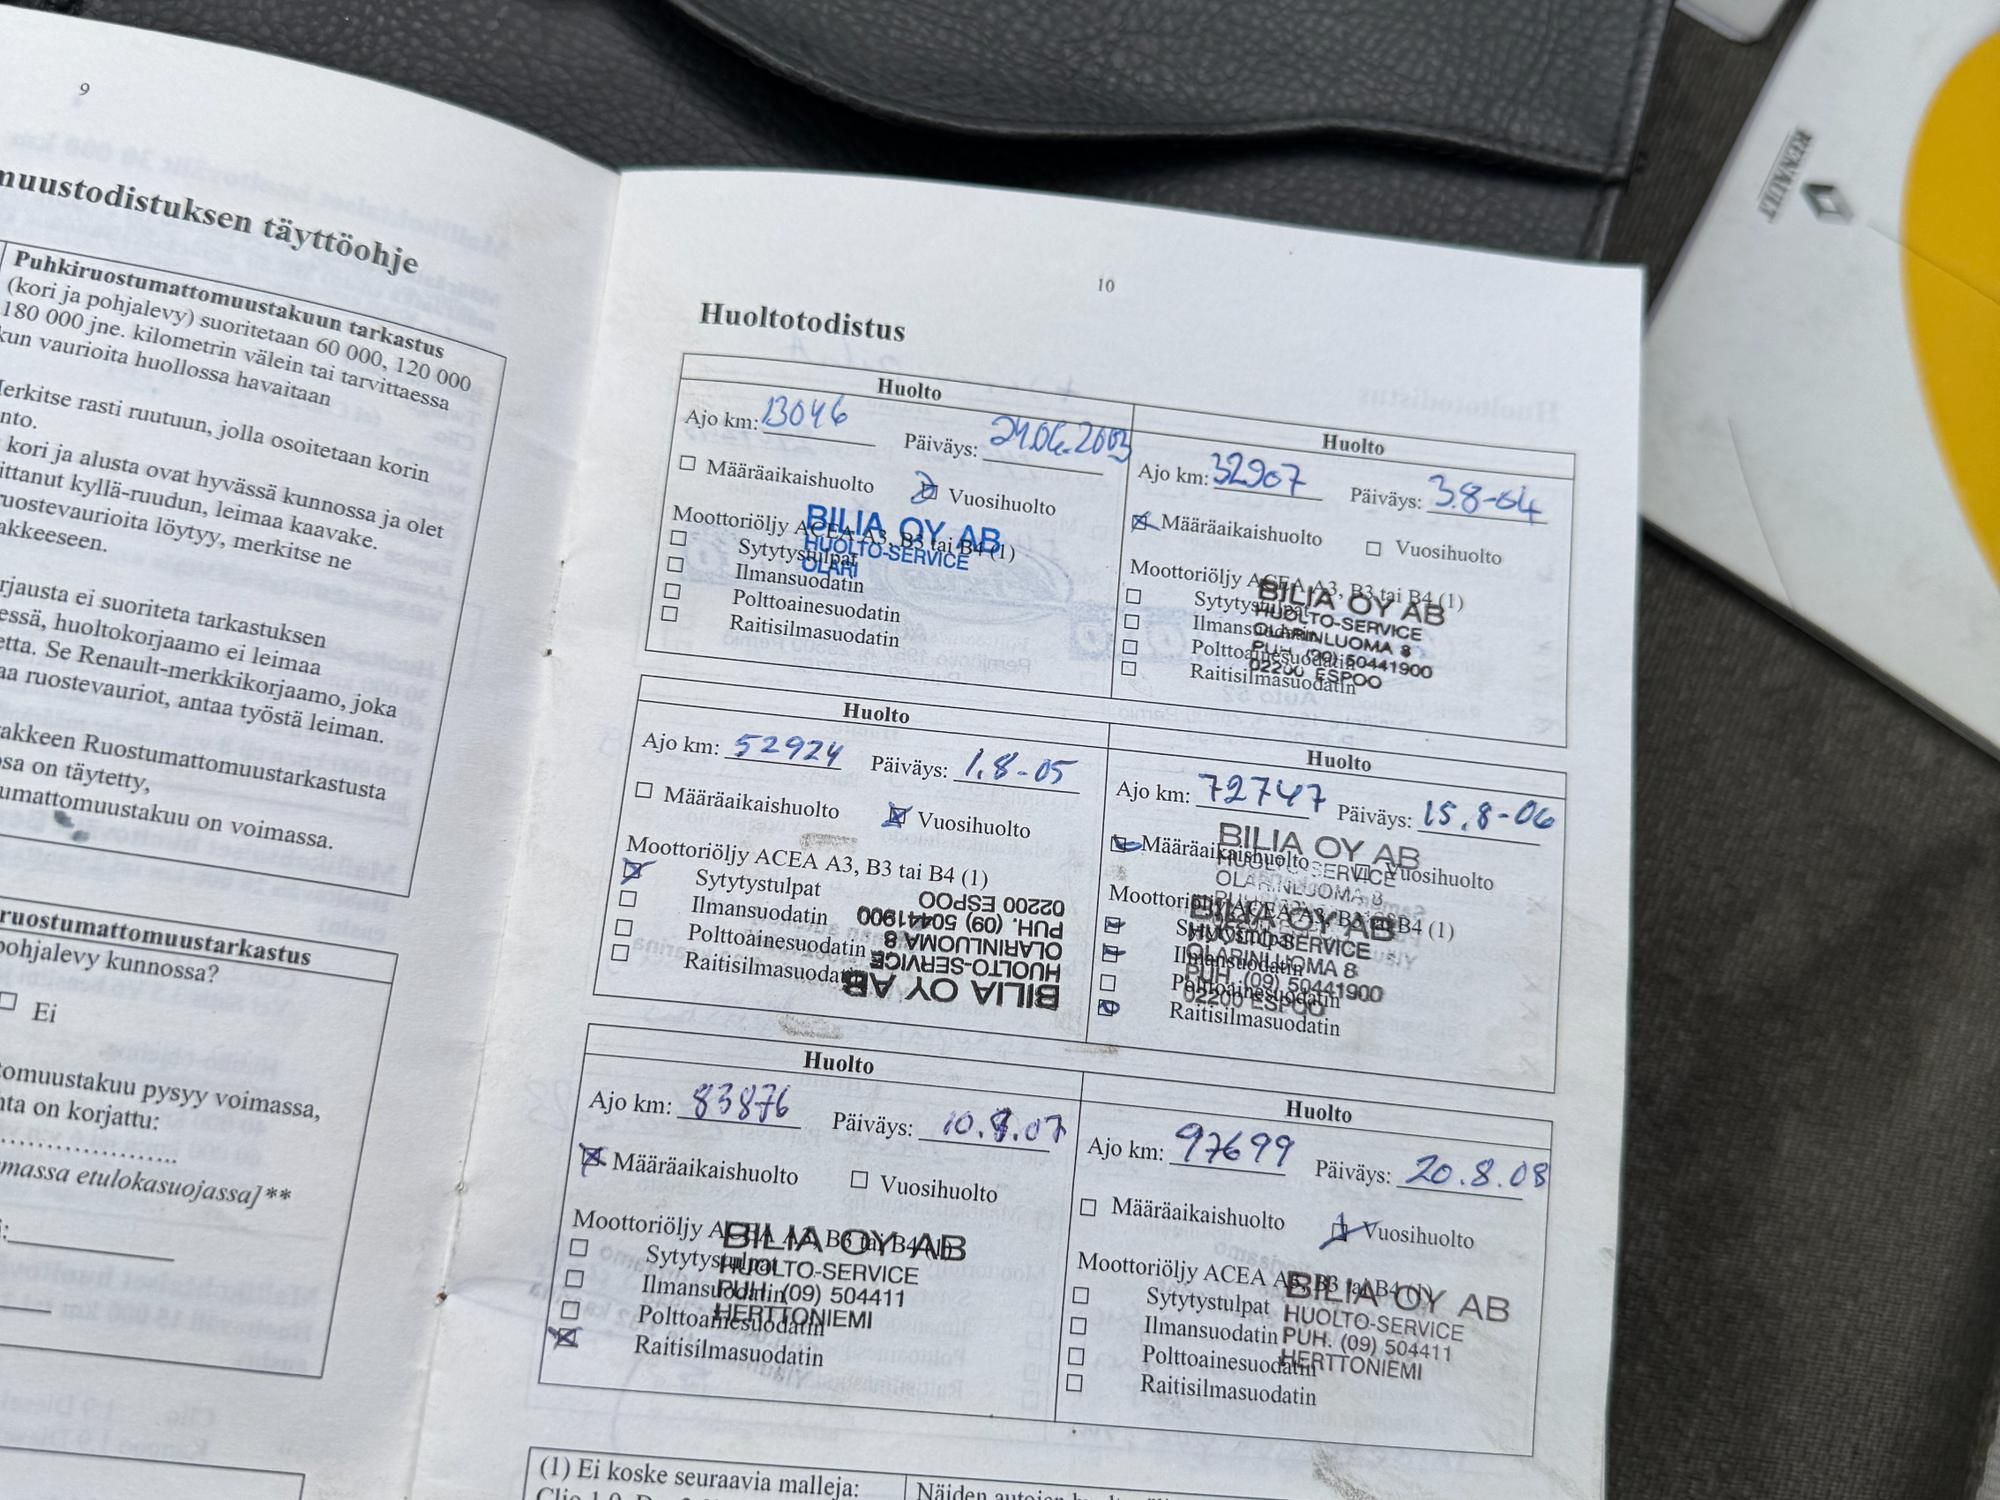 9
muustodistuksen täyttöohje
Puhkiruostumattomuustakuun tarkastus
(kori ja pohjalevy) suoritetaan 60 000, 120 000
180 000 jne. kilometrin välein tai tarvittaessa
kun vaurioita huollossa havaitaan
Merkitse rasti ruutuun, jolla osoitetaan korin
kori ja alusta ovat hyvässä kunnossa ja olet
ruostevaurioita löytyy, merkitse ne
akkeeseen.
ei suoriteta tarkastuksen
huoltokorjaamo ei leimaa
Se Renault-merkkikorjaamo, joka
ruostevauriot, antaa työstä leiman.
Ruostumattomuustarkastusta
on täytetty,
umattomuustakuu on voimassa.
ruostumattomuustarkastus
pohjalevy kunnossa?
Ei
omuustakuu pysyy voimassa,
on korjattu:
massa etulokasuojassa]**
10
Huoltotodistus
Huolto
Ajo km: 13046 Päiväys: 24.06.2003
Määräaikaishuolto Vuosihuolto
Moottoriöljy ACEA A3, B3 tai B4 (1)
Sytytystulpat
Ilmansuodatin
Polttoainesuodatin
Raitisilmasuodatin
BILIA OY AB
HUOLTO-SERVICE
OLARI
Huolto
Ajo km: 32907 Päiväys: 3.8-04
Määräaikaishuolto Vuosihuolto
Moottoriöljy ACEA A3, B3 tai B4 (1)
Sytytystulpat
Ilmansuodatin
Polttoainesuodatin
Raitisilmasuodatin
BILIA OY AB
HUOLTO-SERVICE
OLARINLUOMA 8
PUH. (09) 50441900
02200 ESPOO
Huolto
Ajo km: 52924 Päiväys: 1.8-05
Määräaikaishuolto Vuosihuolto
Moottoriöljy ACEA A3, B3 tai B4 (1)
Sytytystulpat
Ilmansuodatin
Polttoainesuodatin
Raitisilmasuodatin
BILIA OY AB
HUOLTO-SERVICE
OLARINLUOMA 8
PUH. (09) 50441900
02200 ESPOO
Huolto
Ajo km: 72747 Päiväys: 15.8-06
Määräaikaishuolto Vuosihuolto
Moottoriöljy ACEA A3, B3 tai B4 (1)
Sytytystulpat
Ilmansuodatin
Polttoainesuodatin
Raitisilmasuodatin
BILIA OY AB
HUOLTO-SERVICE
OLARINLUOMA 8
BILIA OY AB
HUOLTO-SERVICE
OLARINLUOMA 8
PUH. (09) 50441900
02200 ESPOO
Huolto
Ajo km: 83876 Päiväys: 10.8.07
Määräaikaishuolto Vuosihuolto
Moottoriöljy ACEA A3, B3 tai B4 (1)
Sytytystulpat
Ilmansuodatin
Polttoainesuodatin
Raitisilmasuodatin
BILIA OY AB
HUOLTO-SERVICE
PUH. (09) 504411
HERTTONIEMI
Huolto
Ajo km: 97699 Päiväys: 20.8.08
Määräaikaishuolto Vuosihuolto
Moottoriöljy ACEA A3, B3 tai B4 (1)
Sytytystulpat
Ilmansuodatin
Polttoainesuodatin
Raitisilmasuodatin
BILIA OY AB
HUOLTO-SERVICE
PUH. (09) 504411
HERTTONIEMI
(1) Ei koske seuraavia malleja:
Näiden autojen
RENAULT